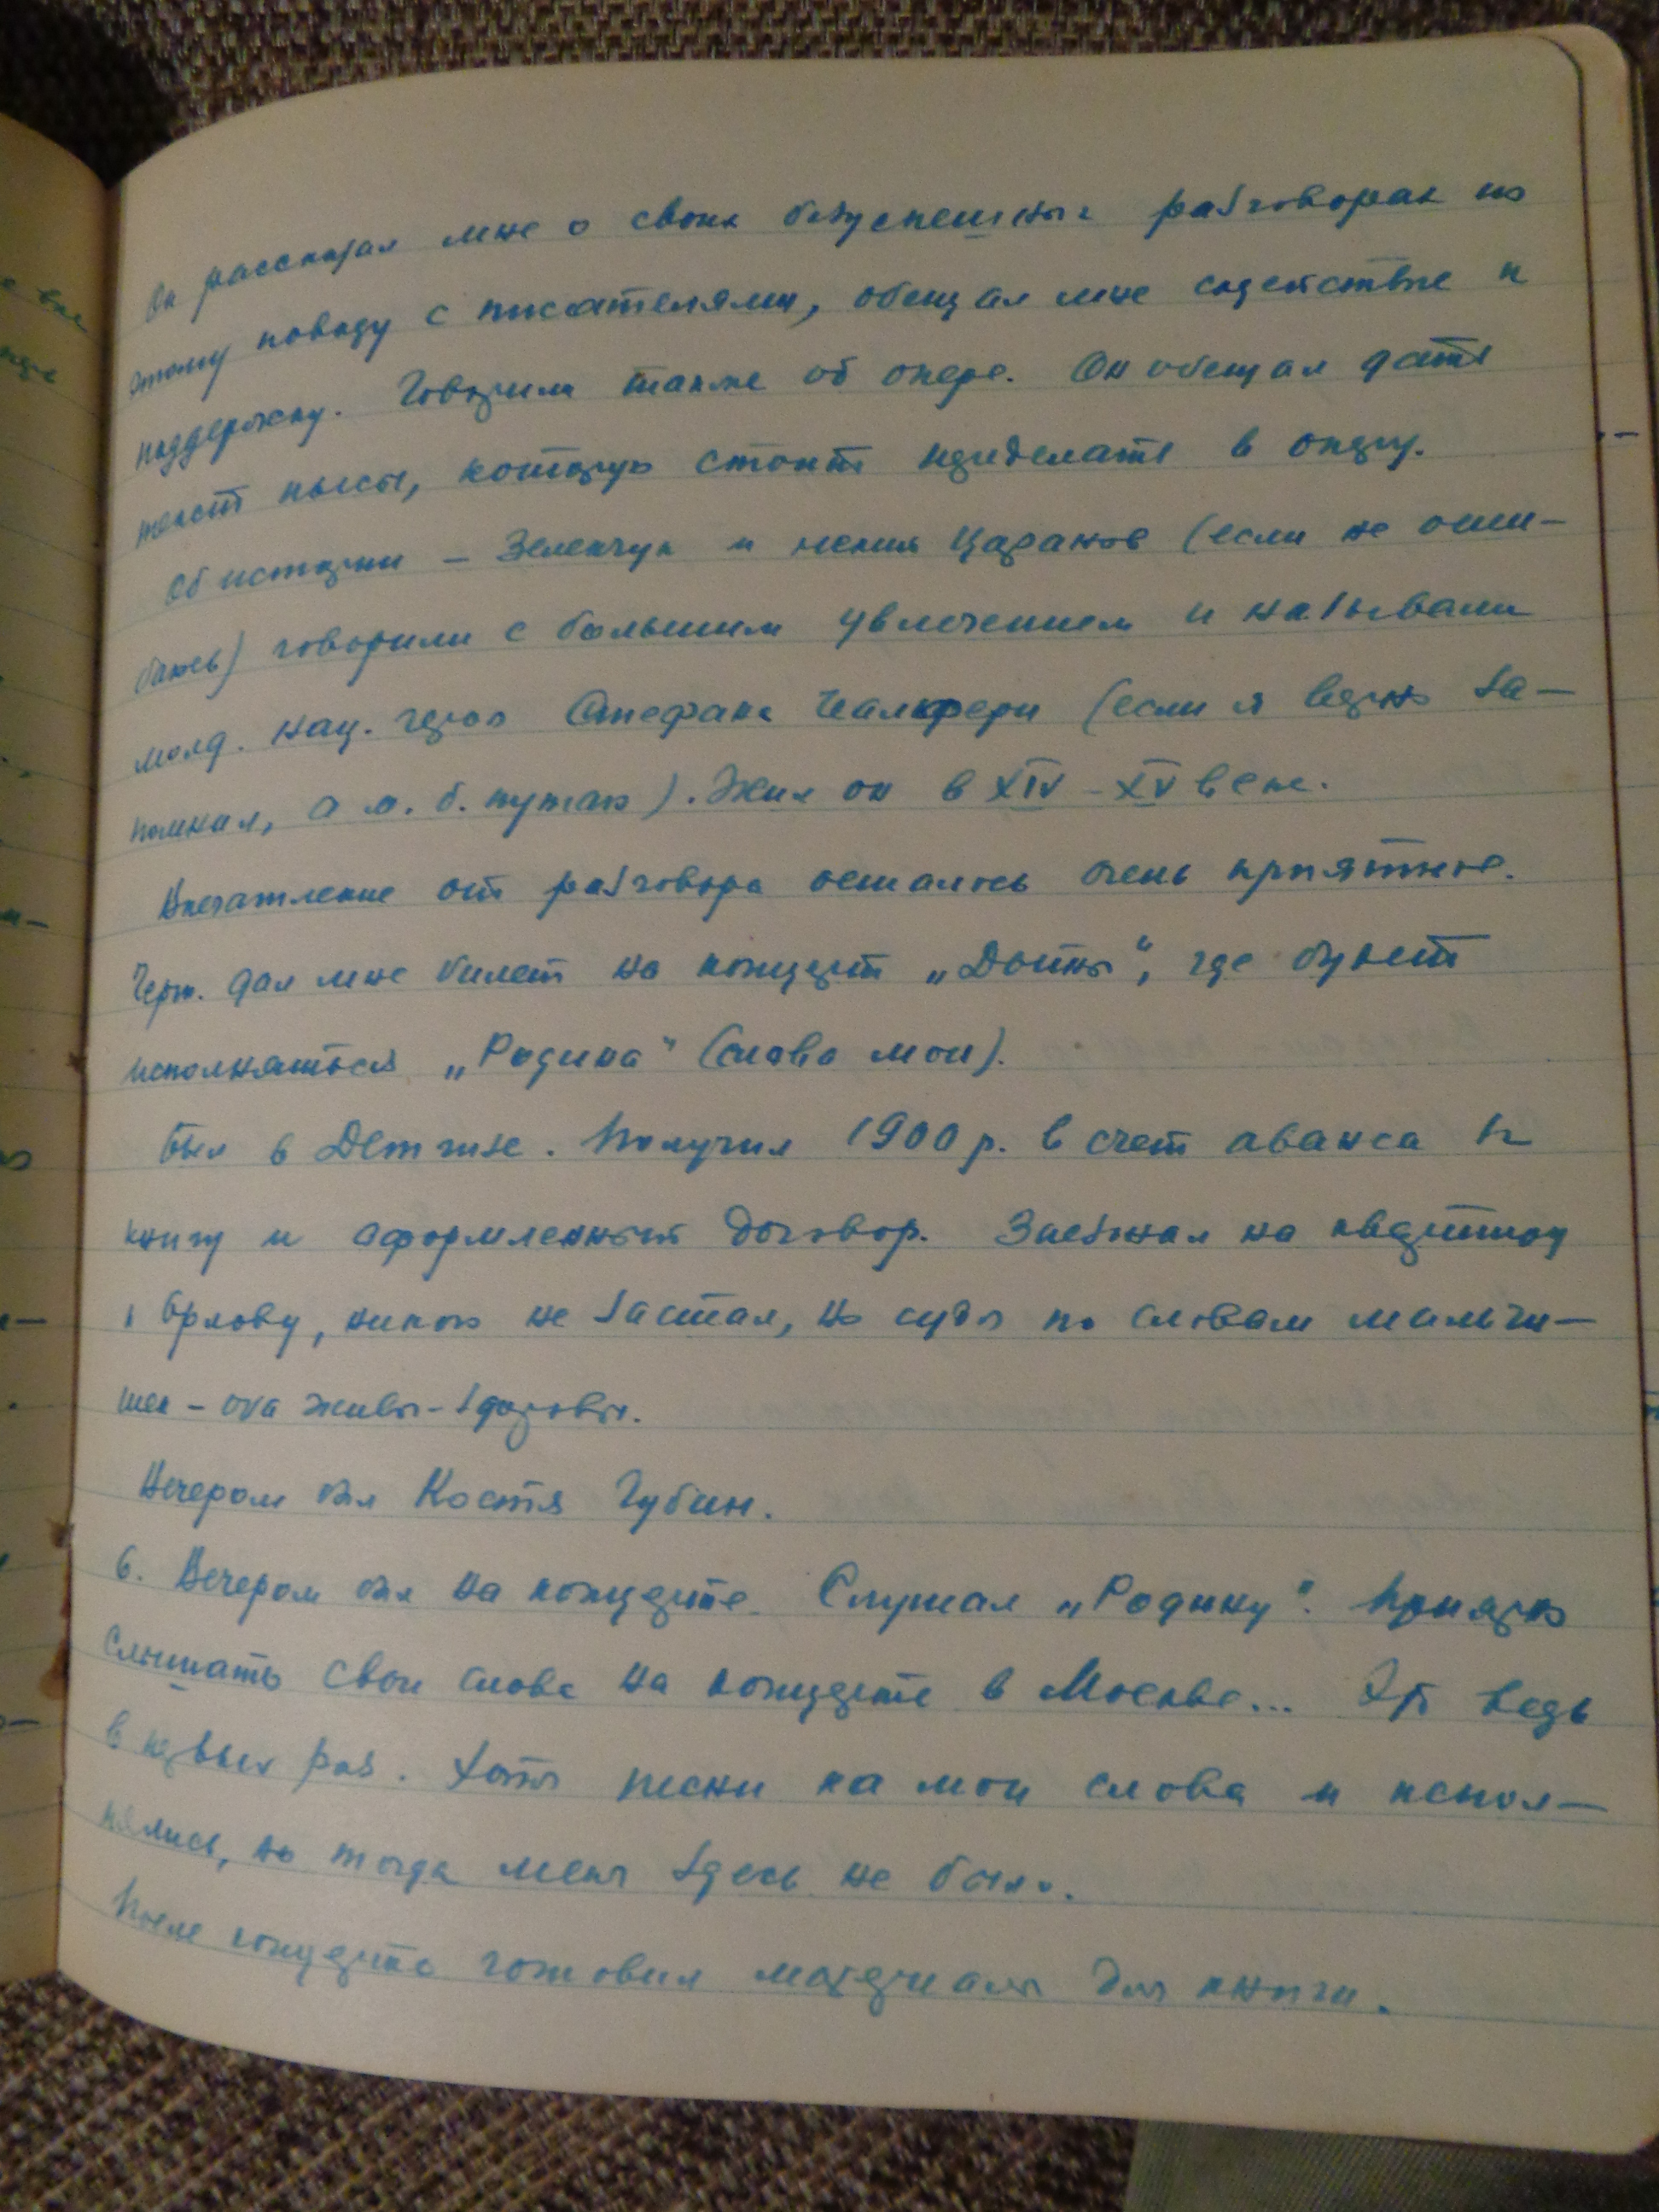 Он рассказал мне о своих безуспешных разговорах по
этому поводу с писателями, обещал мне содействие и
поддержку. Говорили также об опере. Он обещал дать
текст пьесы, которую стоит переделать в оперу.
Об истории – Зеленчук и некий Царанов (если не оши–
баюсь) говорили с большим увлечением и называли
молд. нац. героя Стефана (если я верно за–
помнил, а м. б. путаю). Жил он в XIV – XV веке.
Впечатление от разговора осталось очень приятное.
Черн. дал мне билет на концерт „Дойны“, где будет
исполняться „Родина“ (слова мои).
Был в Детгизе. Получил 1900 р. в счет аванса за
книгу и оформленный договор. Заезжал на квартиру
к Орлову, никого не застал, но судя по словам мальчи–
шек – оба живы-здоровы.
Вечером был Костя Губин.
6. Вечером был на концерте. Слушал „Родину“. Приятно
слышать свои слова на концерте в Москве... Это ведь
в первый раз. Хотя песни на мои слова и испол–
нялись, но тогда меня здесь не было.
После концерта готовил материалы для книги.